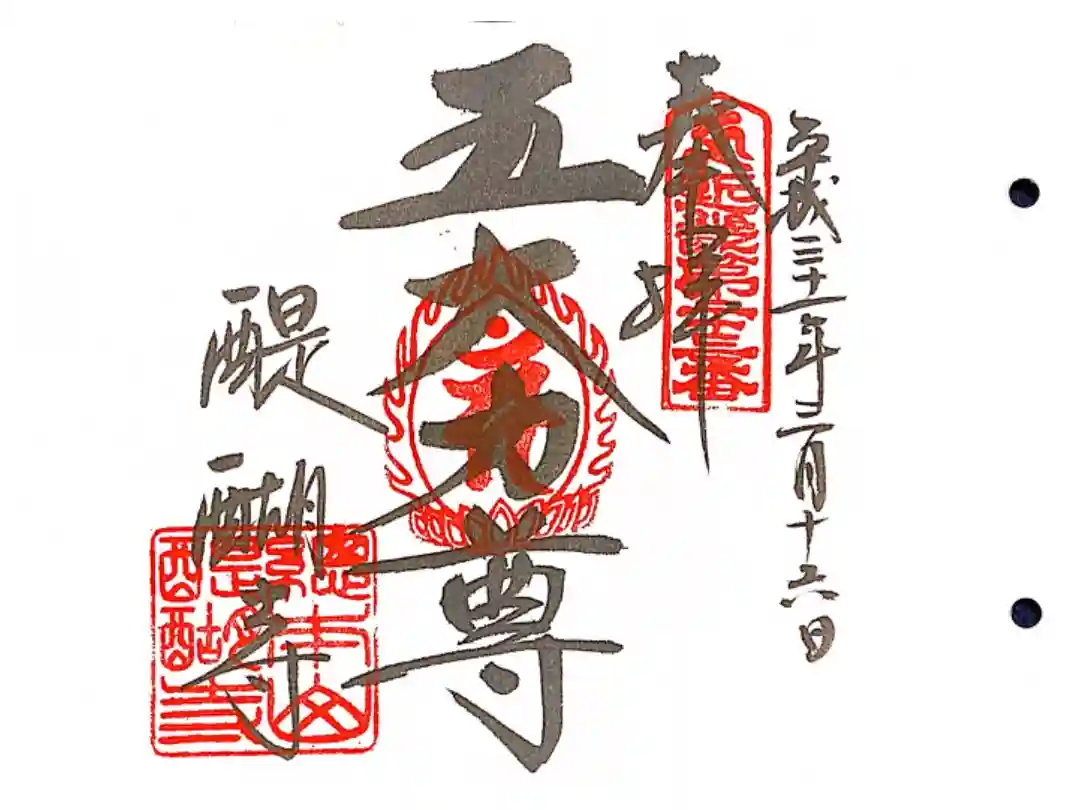 平成三十一年三月十六日
奉拝
五大力尊
醍醐寺
總本山
醍醐寺